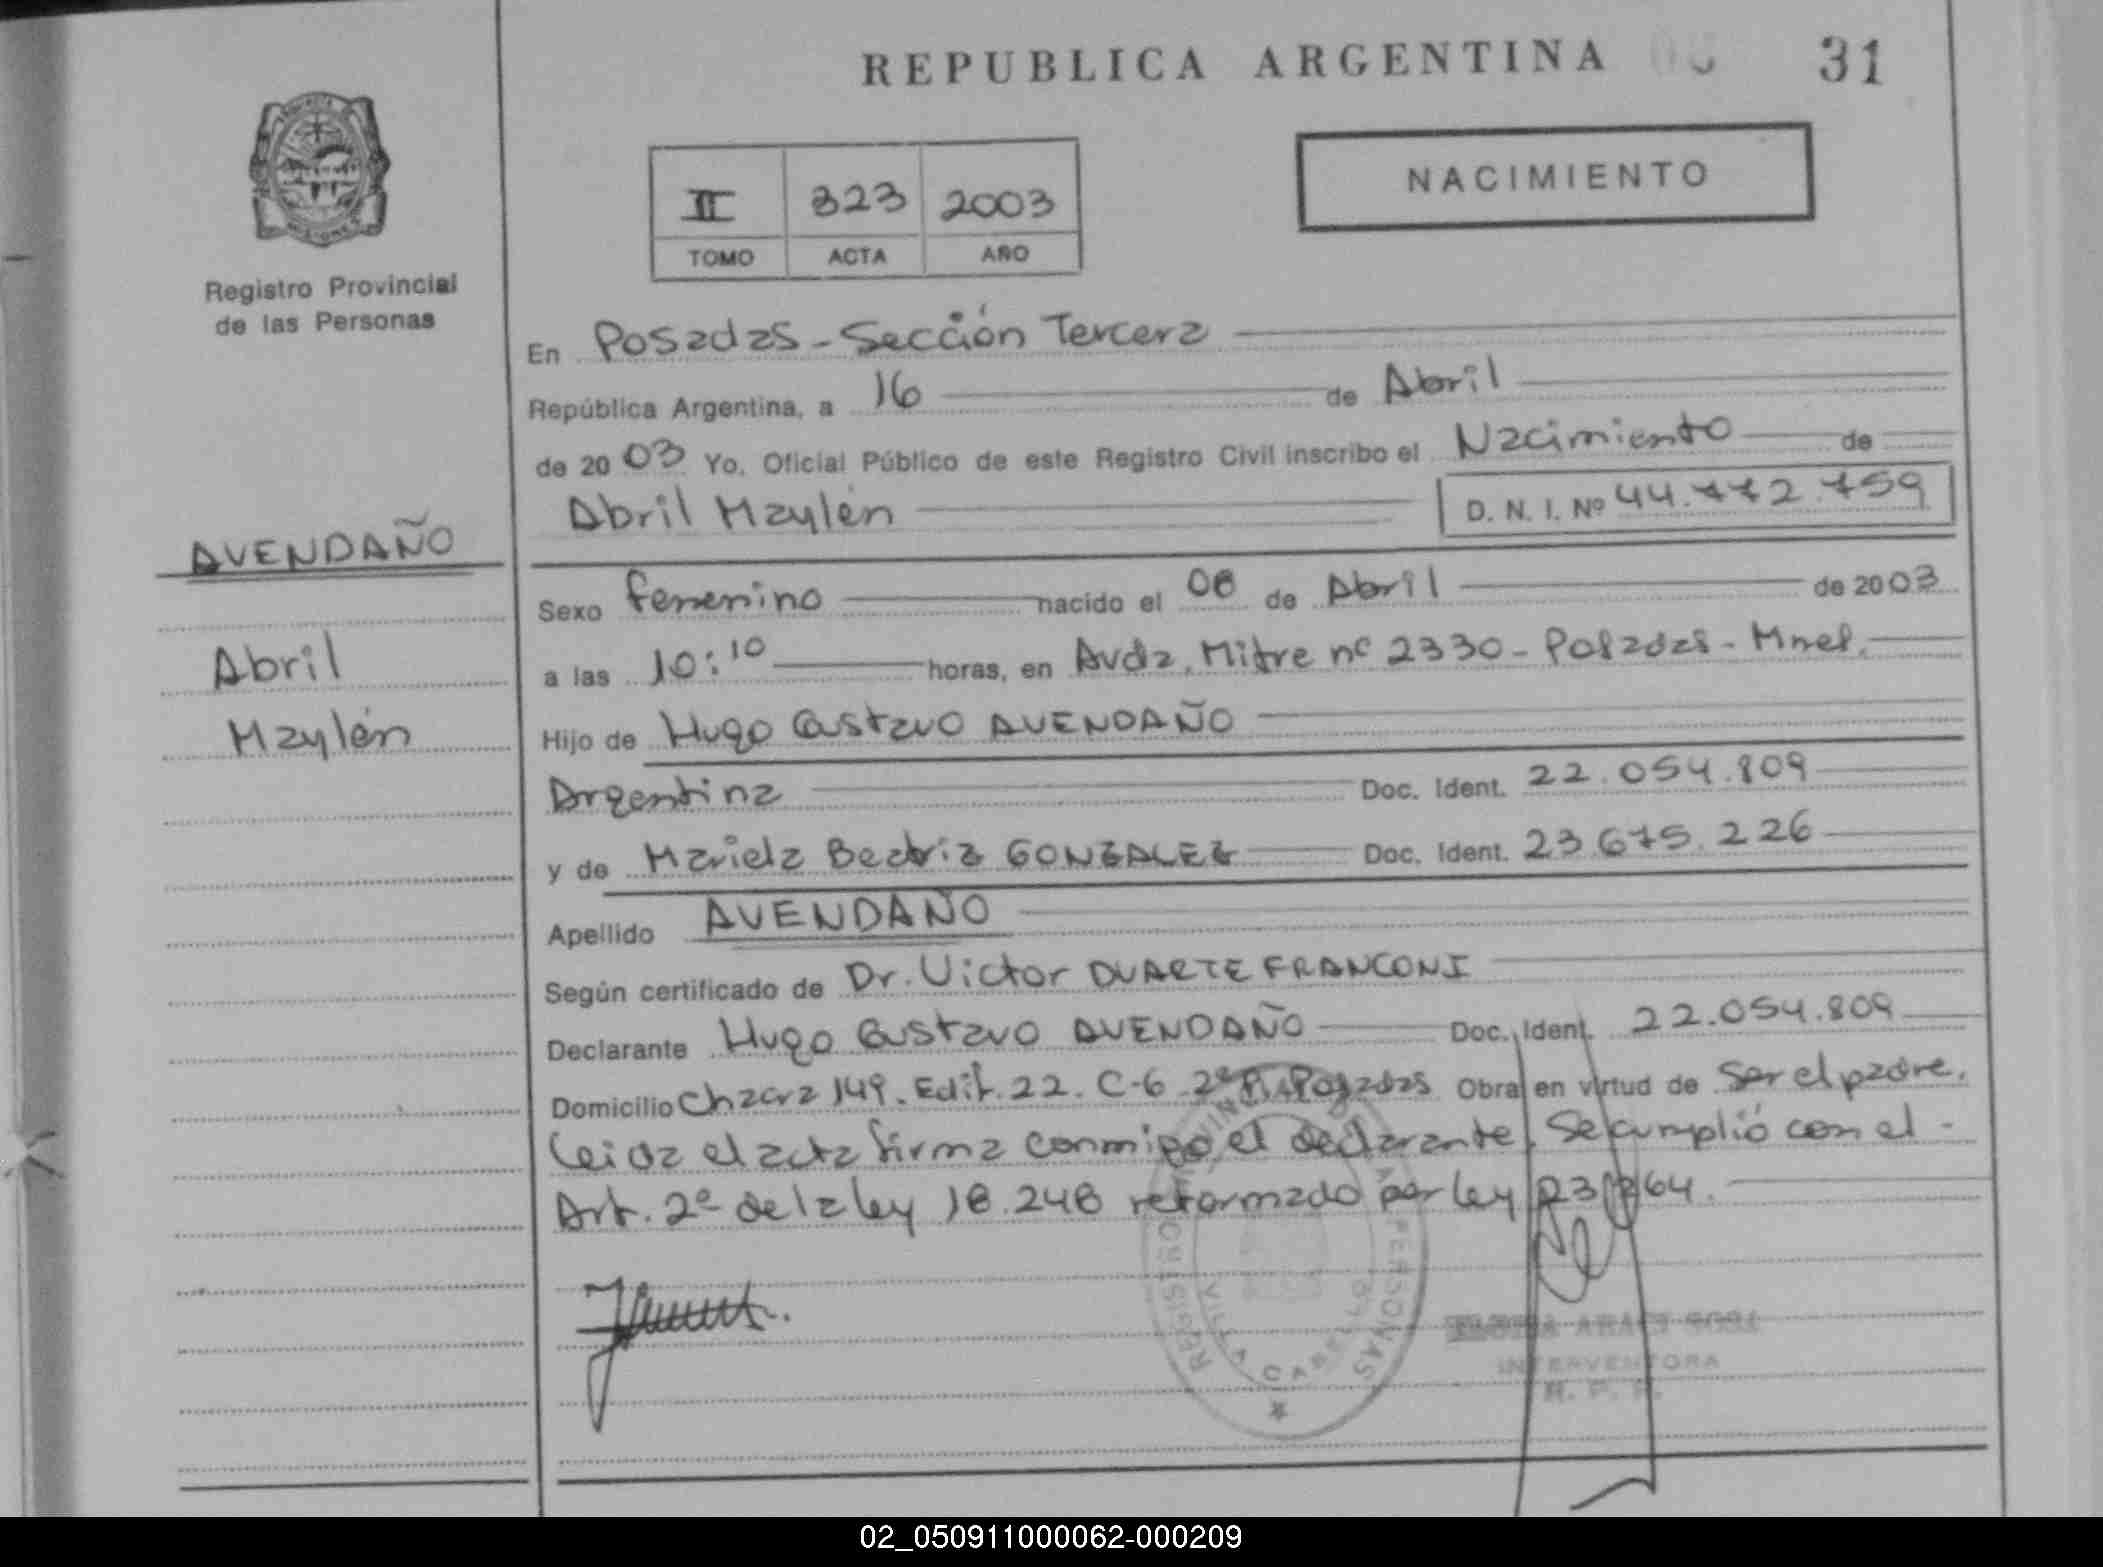 REPUBLICA ARGENTINA
31
NACIMIENTO
II 323 2003
TOMO ACTA AÑO
Registro Provincial
de las Personas
En Posadas - Sección Tercera
República Argentina, a 16 de Abril
de 2003 Yo, Oficial Público de este Registro Civil inscribo el Nacimiento de
Abril Maylén D. N. I. Nº 44.772.759
AVENDAÑO
Abril
Maylén
Sexo femenino nacido el 08 de Abril de 2003
a las 10:10 horas, en Avda. Mitre nº 2330 - Posadas - Mnes.
Hijo de Hugo Gustavo AVENDAÑO
Argentina Doc. Ident. 22.054.809
y de Mariela Beatriz GONZALEZ Doc. Ident. 23.675.226
Apellido AVENDAÑO
Según certificado de Dr. Victor DUARTE FRANCONI
Declarante Hugo Gustavo AVENDAÑO Doc. Ident. 22.054.809
Domicilio Chacra 149. Edif. 22. C-6 2º P. Posadas Obra en virtud de Ser el padre.
Leida el acta firma conmigo el declarante. Se cumplió con el -
Art. 2º de la ley 18.248 reformado por ley 23.264.
REGISTRO PROVINCIAL DE LAS PERSONAS
VILLA CABELLO
SOSA
INTERVENTORA
R. P. P.
02_050911000062-000209